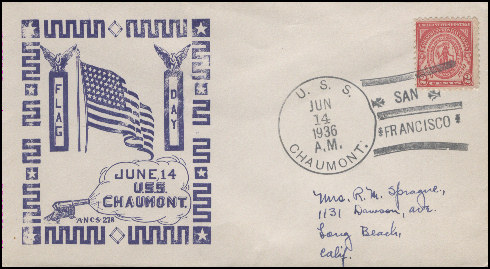 FLAG
DAY
JUNE, 14
U.S.S.
CHAUMONT.
A.N.C.S-278
U. S. S.
JUN
14
1936
A.M.
CHAUMONT.
SAN
FRANCISCO
Mrs. R. M. Sprague,
1131 Dawson, ave.
Long Beach,
Calif.